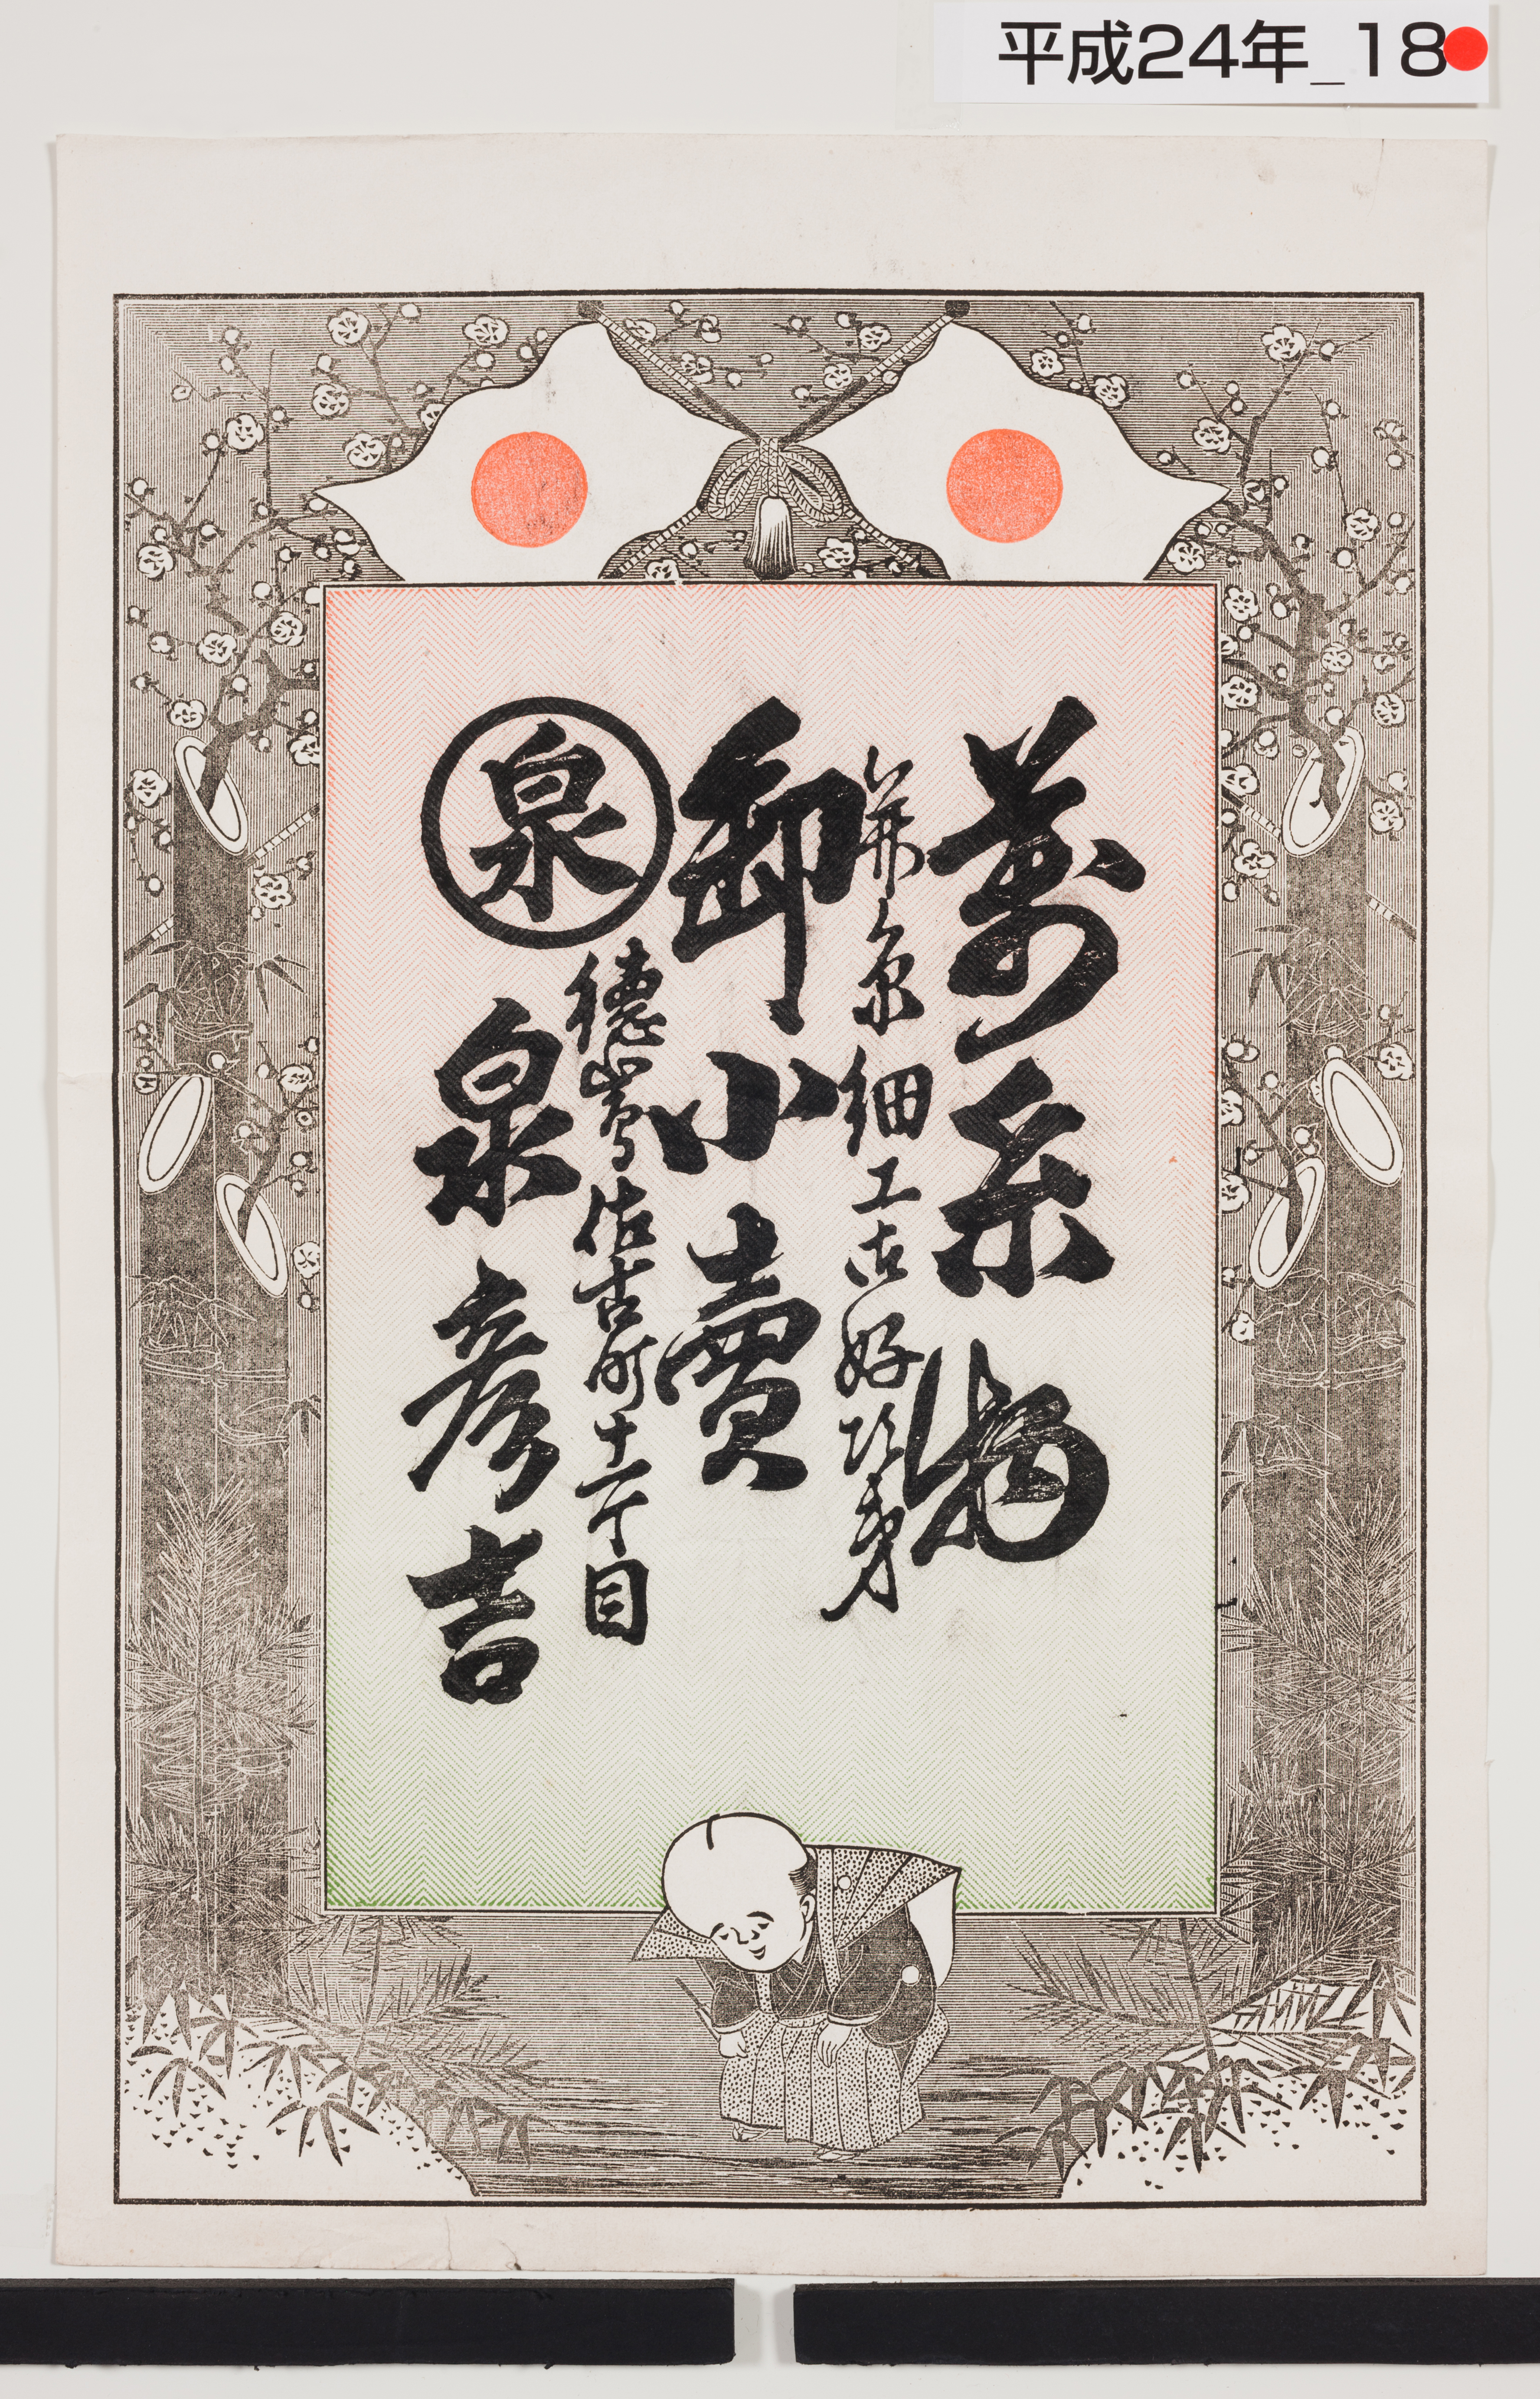 平成24年_18
萬糸物
并ニ糸細工御好次第
卸小賣
德嶌佐古町十一丁目
泉
泉彦吉